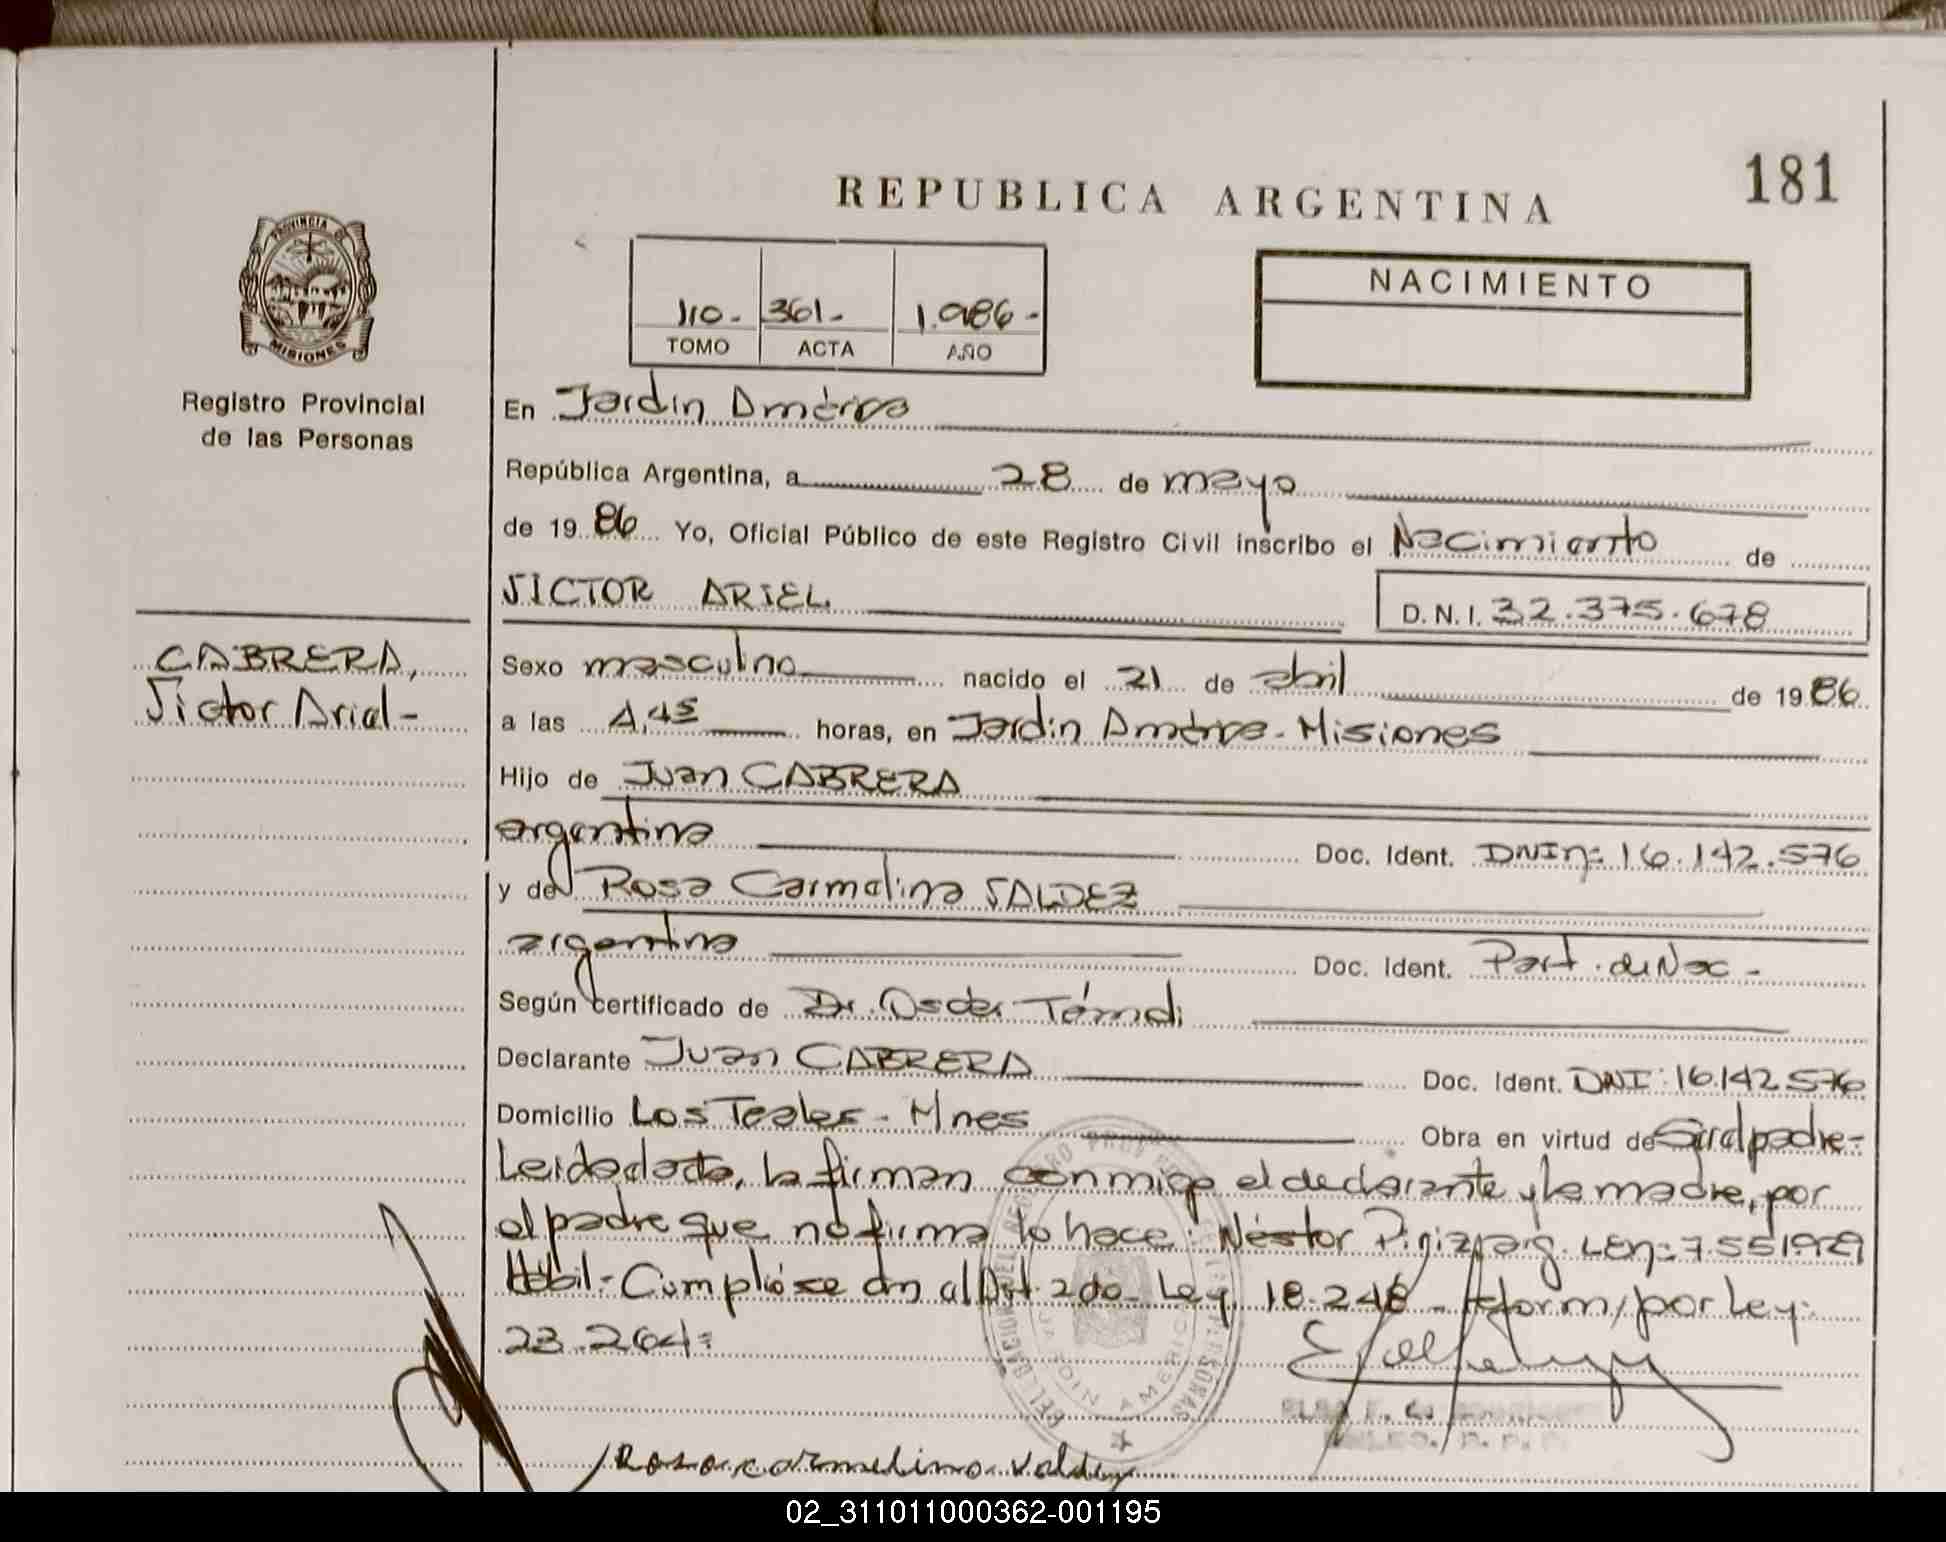 181
REPUBLICA ARGENTINA
PROVINCIA DE
MISIONES
Registro Provincial
de las Personas
NACIMIENTO
110.- 361.- 1.986-
TOMO ACTA AÑO
En Jardín América
República Argentina, a 28 de mayo
de 1986 Yo, Oficial Público de este Registro Civil inscribo el Nacimiento de
VICTOR ARIEL
D.N.I. 32.375.678
CABRERA,
Victor Ariel-
Sexo masculino nacido el 21 de abril de 1986
a las 4,45 horas, en Jardín América - Misiones
Hijo de Juan CABRERA
argentina Doc. Ident. DNIn: 16.142.576
y de Rosa Carmelina VALDEZ
argentina Doc. Ident. Part. de Nac-
Según certificado de Dr. Oscar
Declarante Juan CABRERA Doc. Ident. DNI: 16.142.576
Domicilio Los Teales - Mnes Obra en virtud de Ser el padre-
Leida el acta, la firman conmigo el declarante y la madre, por
el padre que no firma lo hace: Néstor LEn: 7.551.929
Hábil- Cumplióse con el Art. 2do- Ley 18.248 - reform/por Ley:
23.264:
JARDIN AMERICA
Rosa carmelina valdez
02_311011000362-001195